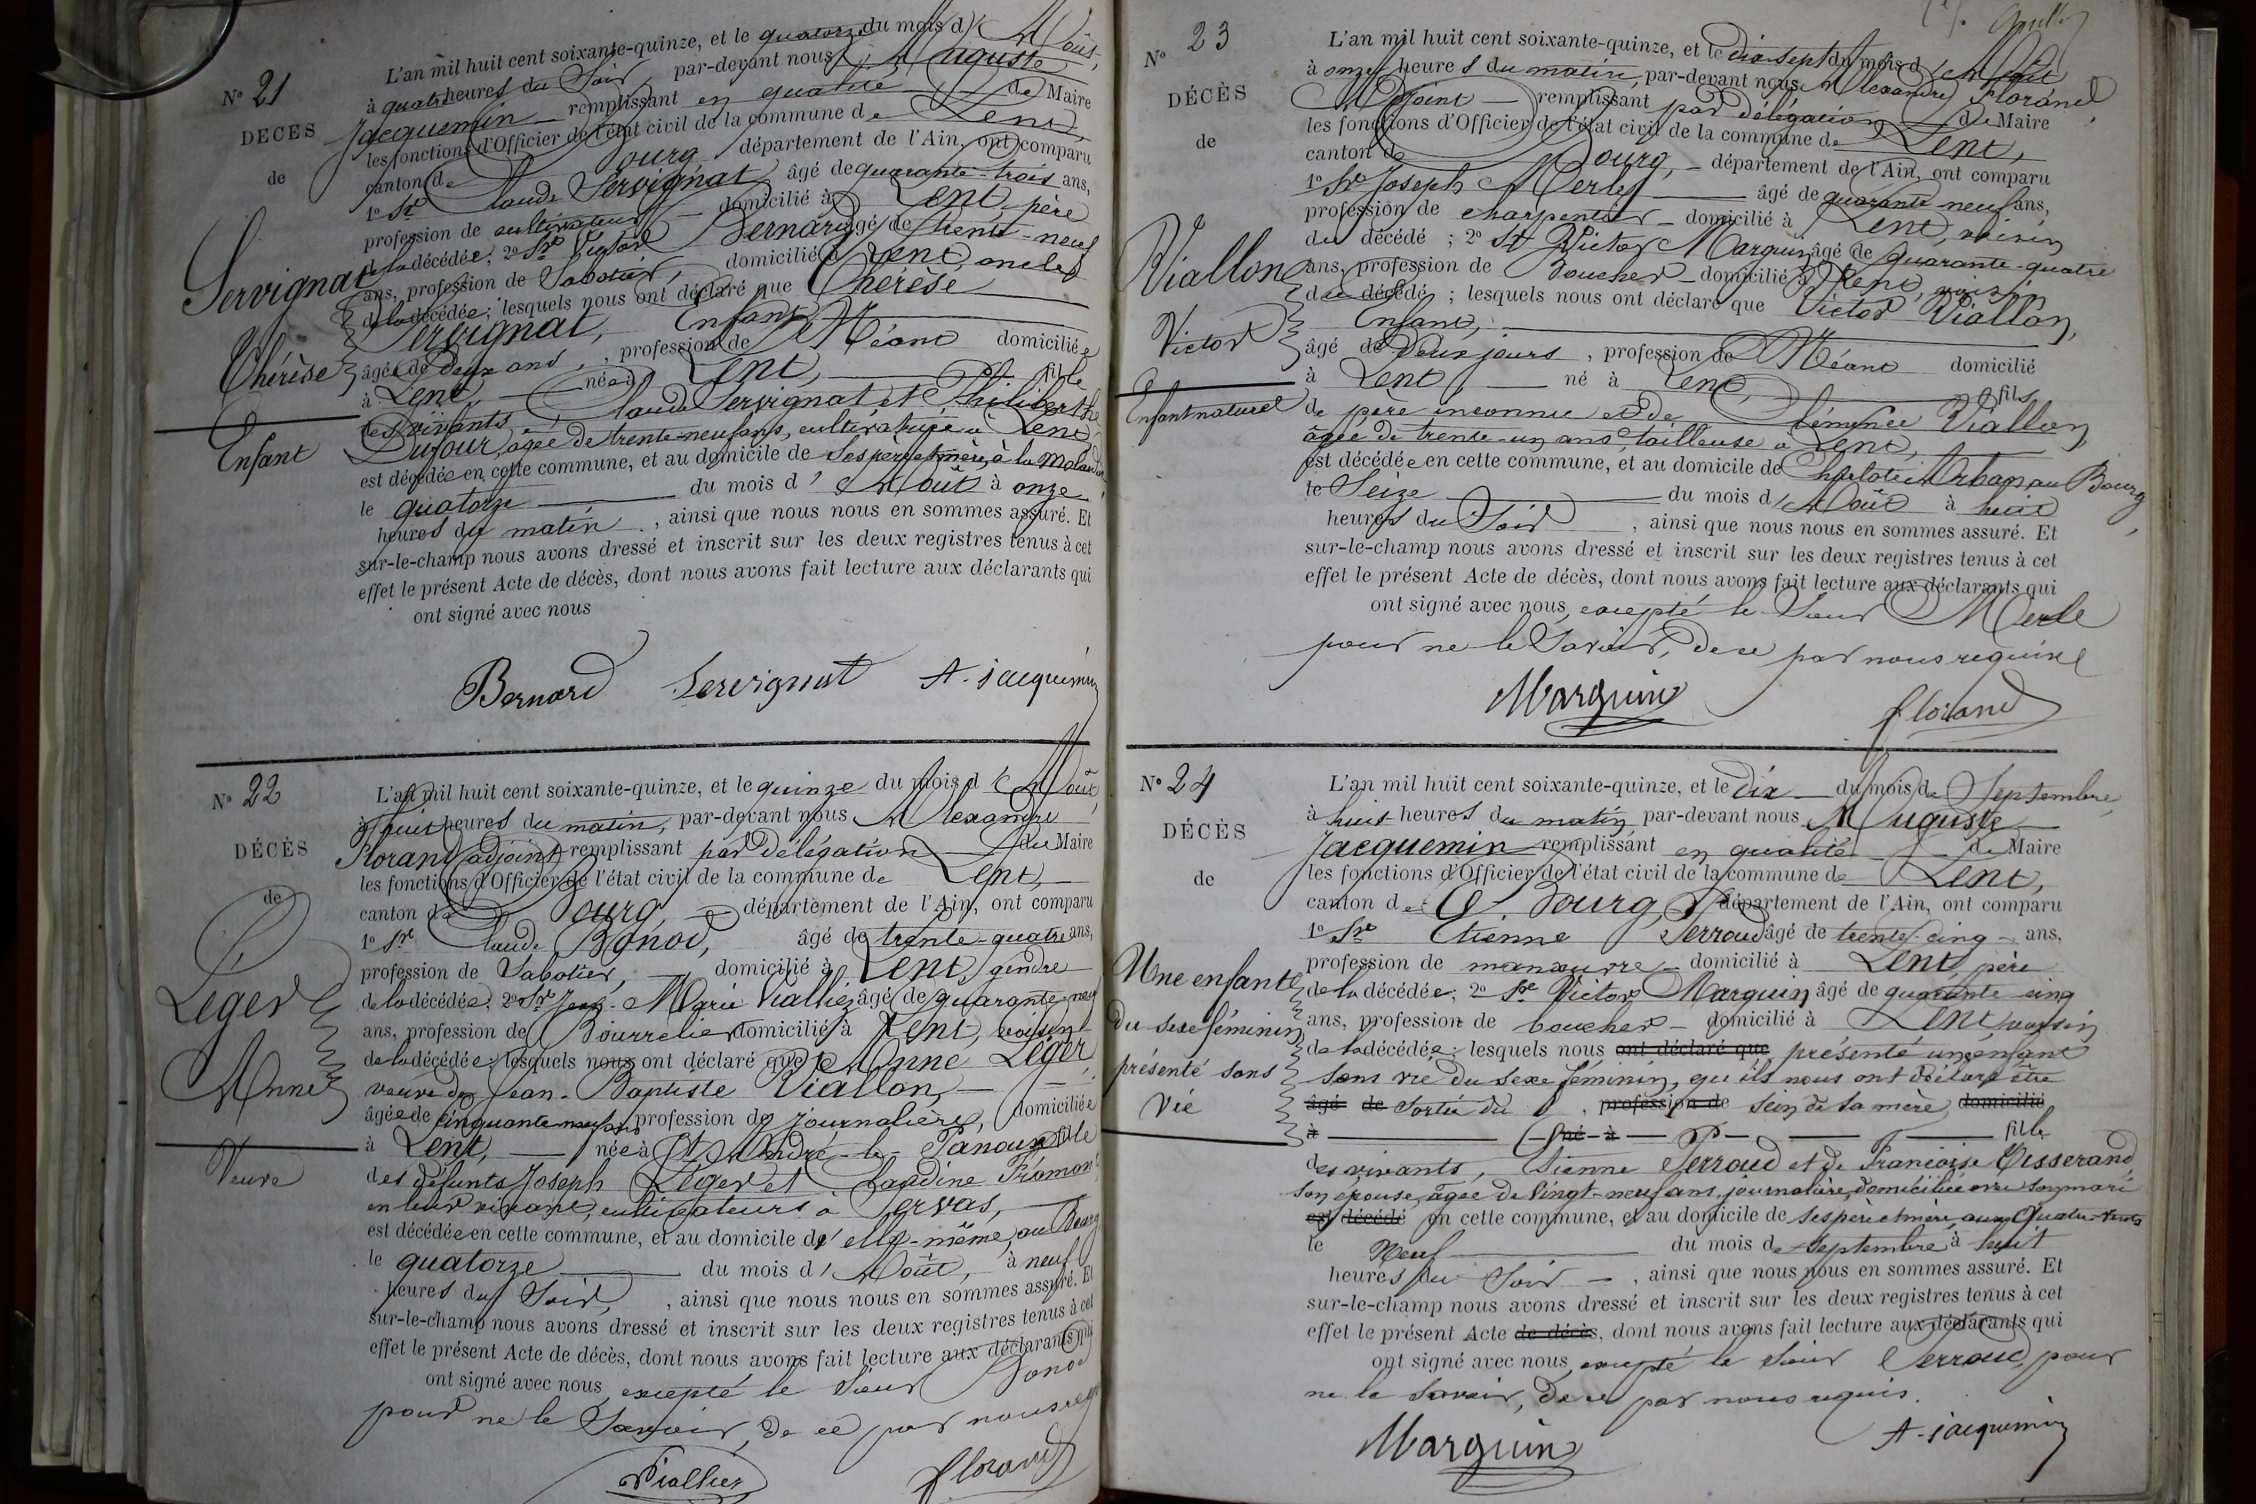 N° 21
DÉCÈS
de
Servignat
Thérèse
Enfant
L'an mil huit cent soixante-quinze, et le quatorze du mois d'Août,
à quatre heures du Soir, par-devant nous Auguste
Jacquemin remplissant en qualité de Maire
les fonctions d'Officier de l'état civil de la commune de Lent,
canton de Bourg département de l'Ain, ont comparu
1° Sr Claude Servignat âgé de quarante-trois ans,
profession de cultivateur domicilié à Lent, père
de la décédée; 2° Sr Victor Bernard âgé de trente-neuf
ans, profession de Sabotier, domicilié à Lent, oncle
de la décédée; lesquels nous ont déclaré que Thérèse
Servignat, Enfant,
âgée de deux ans, profession de Néant domiciliée
à Lent, née à Lent, fille
des vivants Claude Servignat et Philiberthe
Dufour, âgée de trente-neuf ans, cultivateurs à Lent,
est décédée en cette commune, et au domicile de ses père et mère, à la
le quatorze du mois d'Août à onze
heures du matin, ainsi que nous nous en sommes assuré. Et
sur-le-champ nous avons dressé et inscrit sur les deux registres tenus à cet
effet le présent Acte de décès, dont nous avons fait lecture aux déclarants qui
ont signé avec nous
Bernard Servignat A. jacquemin
N° 22
DÉCÈS
de
Léger
Anne
Veuve
L'an mil huit cent soixante-quinze, et le quinze du mois d'Août,
à huit heures du matin, par-devant nous Alexandre
Florand adjoint remplissant par délégation du Maire
les fonctions d'Officier de l'état civil de la commune de Lent,
canton de Bourg, département de l'Ain, ont comparu
1° Sr Claude Bonod, âgé de trente-quatre ans,
profession de Sabotier, domicilié à Lent, gendre
de la décédée; 2° Sr Jean-Marie Viallier, âgé de quarante-neuf
ans, profession de Bourrelier domicilié à Lent, voisin
de la décédée; lesquels nous ont déclaré que Anne Léger,
veuve de Jean-Baptiste Viallon,
âgée de cinquante-neuf ans profession de journalière, domiciliée
à Lent, née à St André-le-Panoux fille
des défunts Joseph Léger et Claudine Frémont
en leur vivant, cultivateurs à Servas,
est décédée en cette commune, et au domicile d'elle-même, au Bourg
le quatorze du mois d'Août, à neuf
heures du Soir, ainsi que nous nous en sommes assuré. Et
sur-le-champ nous avons dressé et inscrit sur les deux registres tenus à cet
effet le présent Acte de décès, dont nous avons fait lecture aux déclarants qui
ont signé avec nous excepté le Sieur Bonod
pour ne le Savoir, de ce par nous
Viallier florand
N° 23
DÉCÈS
de
Viallon
Victor
Enfant naturel
L'an mil huit cent soixante-quinze, et le dix-sept du mois d'Août
à onze heures du matin, par-devant nous Alexandre Florand,
Adjoint remplissant par délégation de Maire
les fonctions d'Officier de l'état civil de la commune de Lent,
canton de Bourg, département de l'Ain, ont comparu
1° Sr Joseph Merle âgé de quarante-neuf ans,
profession de charpentier domicilié à Lent, voisin
du décédé; 2° Sr Victor Marguin, âgé de quarante-quatre
ans, profession de Boucher domicilié à Lent, voisin
du décédé; lesquels nous ont déclaré que Victor Viallon,
Enfant,
âgé de deux jours, profession de Néant domicilié
à Lent, né à Lent, fils
de père inconnu et de Clémence Viallon,
âgée de trente-un ans, tailleuse à Lent,
est décédée en cette commune, et au domicile de au Bourg
le Seize du mois d'Août à huit
heures du Soir, ainsi que nous nous en sommes assuré. Et
sur-le-champ nous avons dressé et inscrit sur les deux registres tenus à cet
effet le présent Acte de décès, dont nous avons fait lecture aux déclarants qui
ont signé avec nous, excepté le Sieur Merle
pour ne le Savoir, de ce par nous requis
Marguin florand
N° 24
DÉCÈS
de
Une enfante
du sexe féminin
présenté sans
Vie
L'an mil huit cent soixante-quinze, et le dix du mois de Septembre,
à huit heures du matin par-devant nous Auguste
Jacquemin remplissant en qualité de Maire
les fonctions d'Officier de l'état civil de la commune de Lent,
canton de Bourg, département de l'Ain, ont comparu
1° Sr Etienne Perroud âgé de trente-cinq ans,
profession de manœuvre domicilié à Lent, père
de la décédée; 2° Sr Victor Marguin âgé de quarante-cinq
ans, profession de boucher domicilié à Lent, voisin
de la décédée; lesquels nous ont déclaré que présenté un enfant
sans vie du sexe féminin, qu'ils nous ont déclaré être
âgé de sortie du, profession de sein de sa mère, domicilié
à né à fille
des vivants, Etienne Perroud et de Françoise Tisserand,
son épouse, âgée de Vingt-neuf ans, journalière, domiciliée avec son mari
est décédé en cette commune, et au domicile de ses père et mère, aux Quatre-Vents
le Neuf du mois de Septembre à huit
heures du Soir, ainsi que nous nous en sommes assuré. Et
sur-le-champ nous avons dressé et inscrit sur les deux registres tenus à cet
effet le présent Acte de décès, dont nous avons fait lecture aux déclarants qui
ont signé avec nous, excepté le Sieur Perroud, pour
ne le Savoir, de ce par nous requis.
Marguin A. jacquemin